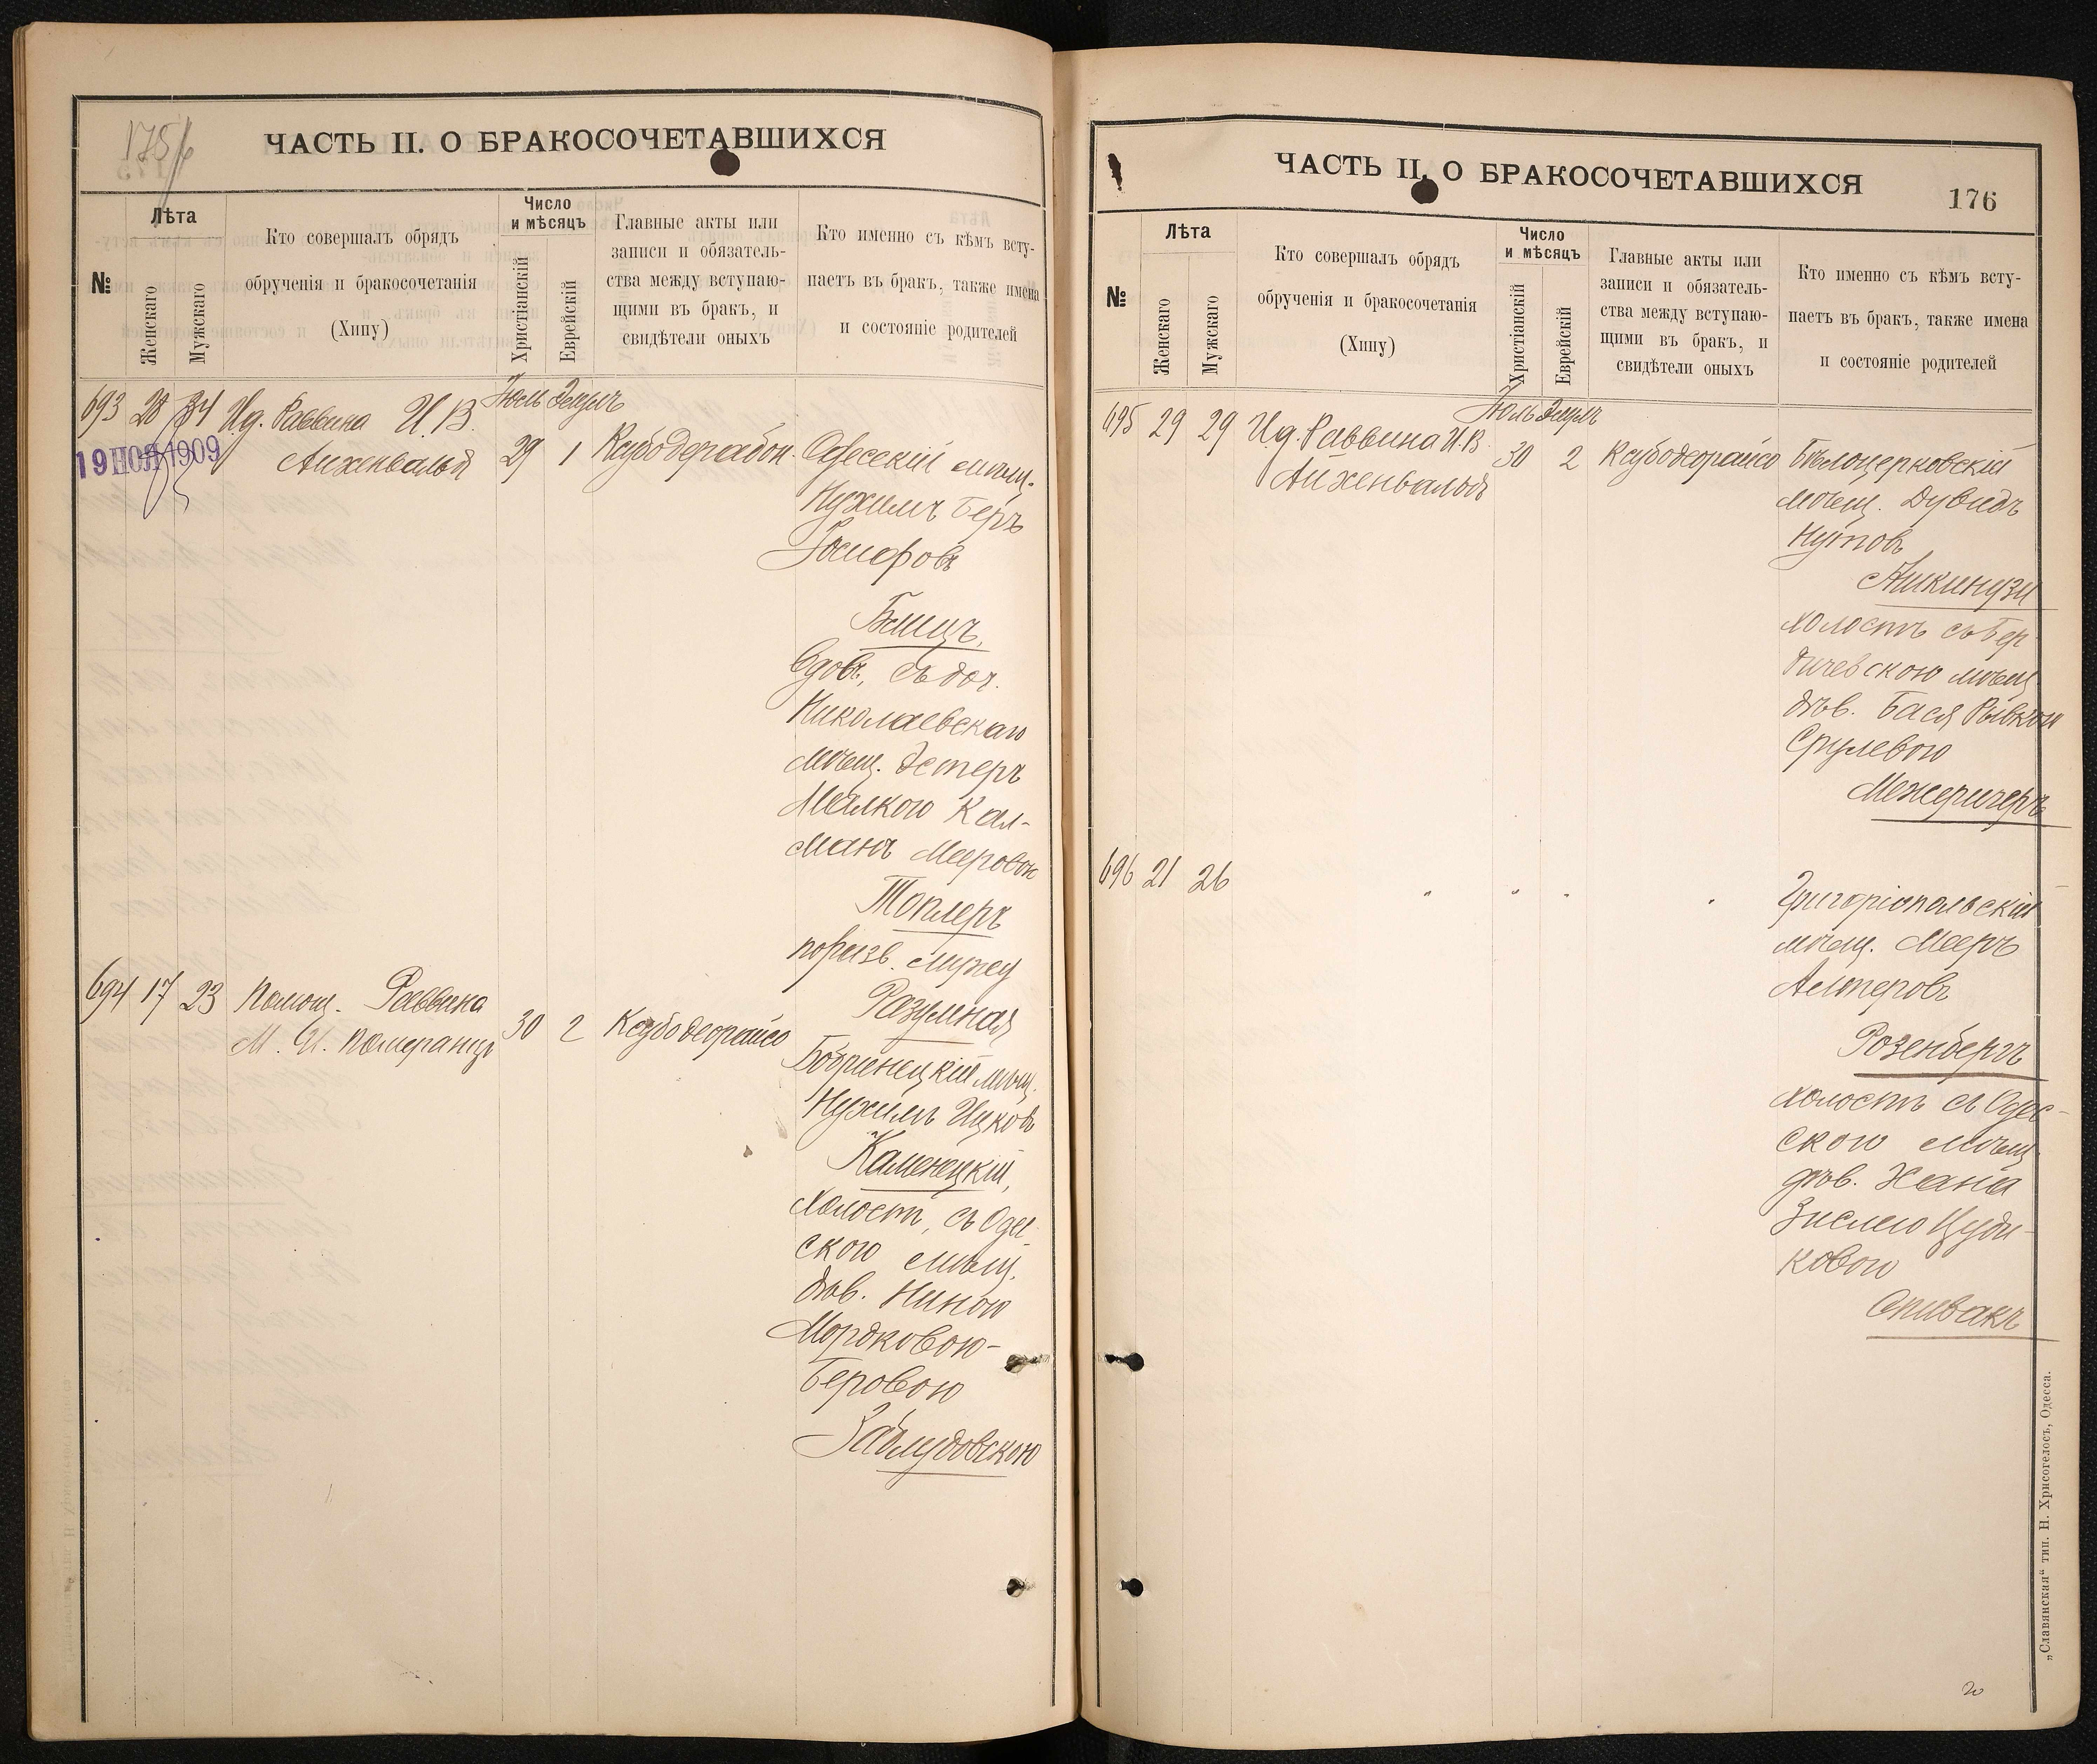 175/6
ЧАСТЬ II. О БРАКОСОЧЕТАВШИХСЯ
№
Лѣта
Женскаго
Мужскаго
Кто совершалъ обрядъ
обрученія и бракосочетанія
(Хипу)
Число
и мѣсяцъ
Христіанскій
Еврейскій
Главные акты или
записи и обязатель-
ства между вступаю-
щими въ бракъ, и
свидѣтели оныхъ
Кто именно съ кѣмъ всту-
паетъ въ бракъ, также имена
и состояніе родителей
693 28 34 Ид. Раввина И. В.
Айхенвальд
19 НОЯ 1909
Іюль Элулъ
29 1
Одесскій мѣщ.
Нухимъ Беръ
Іосифовъ
Бѣлицъ,
вдов., съ доч.
Николаевскаго
мѣщ. Эстеръ
Малкою Кал-
манъ Мееровою
Топлеръ
по разв. мужу
Разумная
694 17 23 Помощ. Раввина
М. И. Померанцъ
30 2 Ксубо деорайсо
Бобринецкій мѣщ.
Нухимъ Ицковъ
Каменецкій,
холост, съ Одес-
скою мѣщ.
дѣв. Ниною
Мордковою-
Беровою
Заблудовскою
ЧАСТЬ II. О БРАКОСОЧЕТАВШИХСЯ
176
№
Лѣта
Женскаго
Мужскаго
Кто совершалъ обрядъ
обрученія и бракосочетанія
(Хипу)
Число
и мѣсяцъ
Христіанскій
Еврейскій
Главные акты или
записи и обязатель-
ства между вступаю-
щими въ бракъ, и
свидѣтели оныхъ
Кто именно съ кѣмъ всту-
паетъ въ бракъ, также имена
и состояніе родителей
695 29 29 Ид. Раввина И. В.
Айхенвальдъ
Іюль Элулъ
30 2 Ксубо деорайсо
Бѣлоцерковскій
мѣщ. Дувидъ
Нутов
Ашкинузи
холостъ съ Бер
дичевскою мѣщ.
дѣв. Бася Рывкою
Срулевою
Межеричеръ
696 21 26 " " " "
Григоріопольскій
мѣщ. Мееръ
Алтеровъ
Розенбергъ
холостъ съ Одес-
скою мѣщ
дѣв. Хана
Зислею Цуди-
ковою
Спивакъ
„Славянская“ тип. Н. Хрисогелосъ, Одесса.